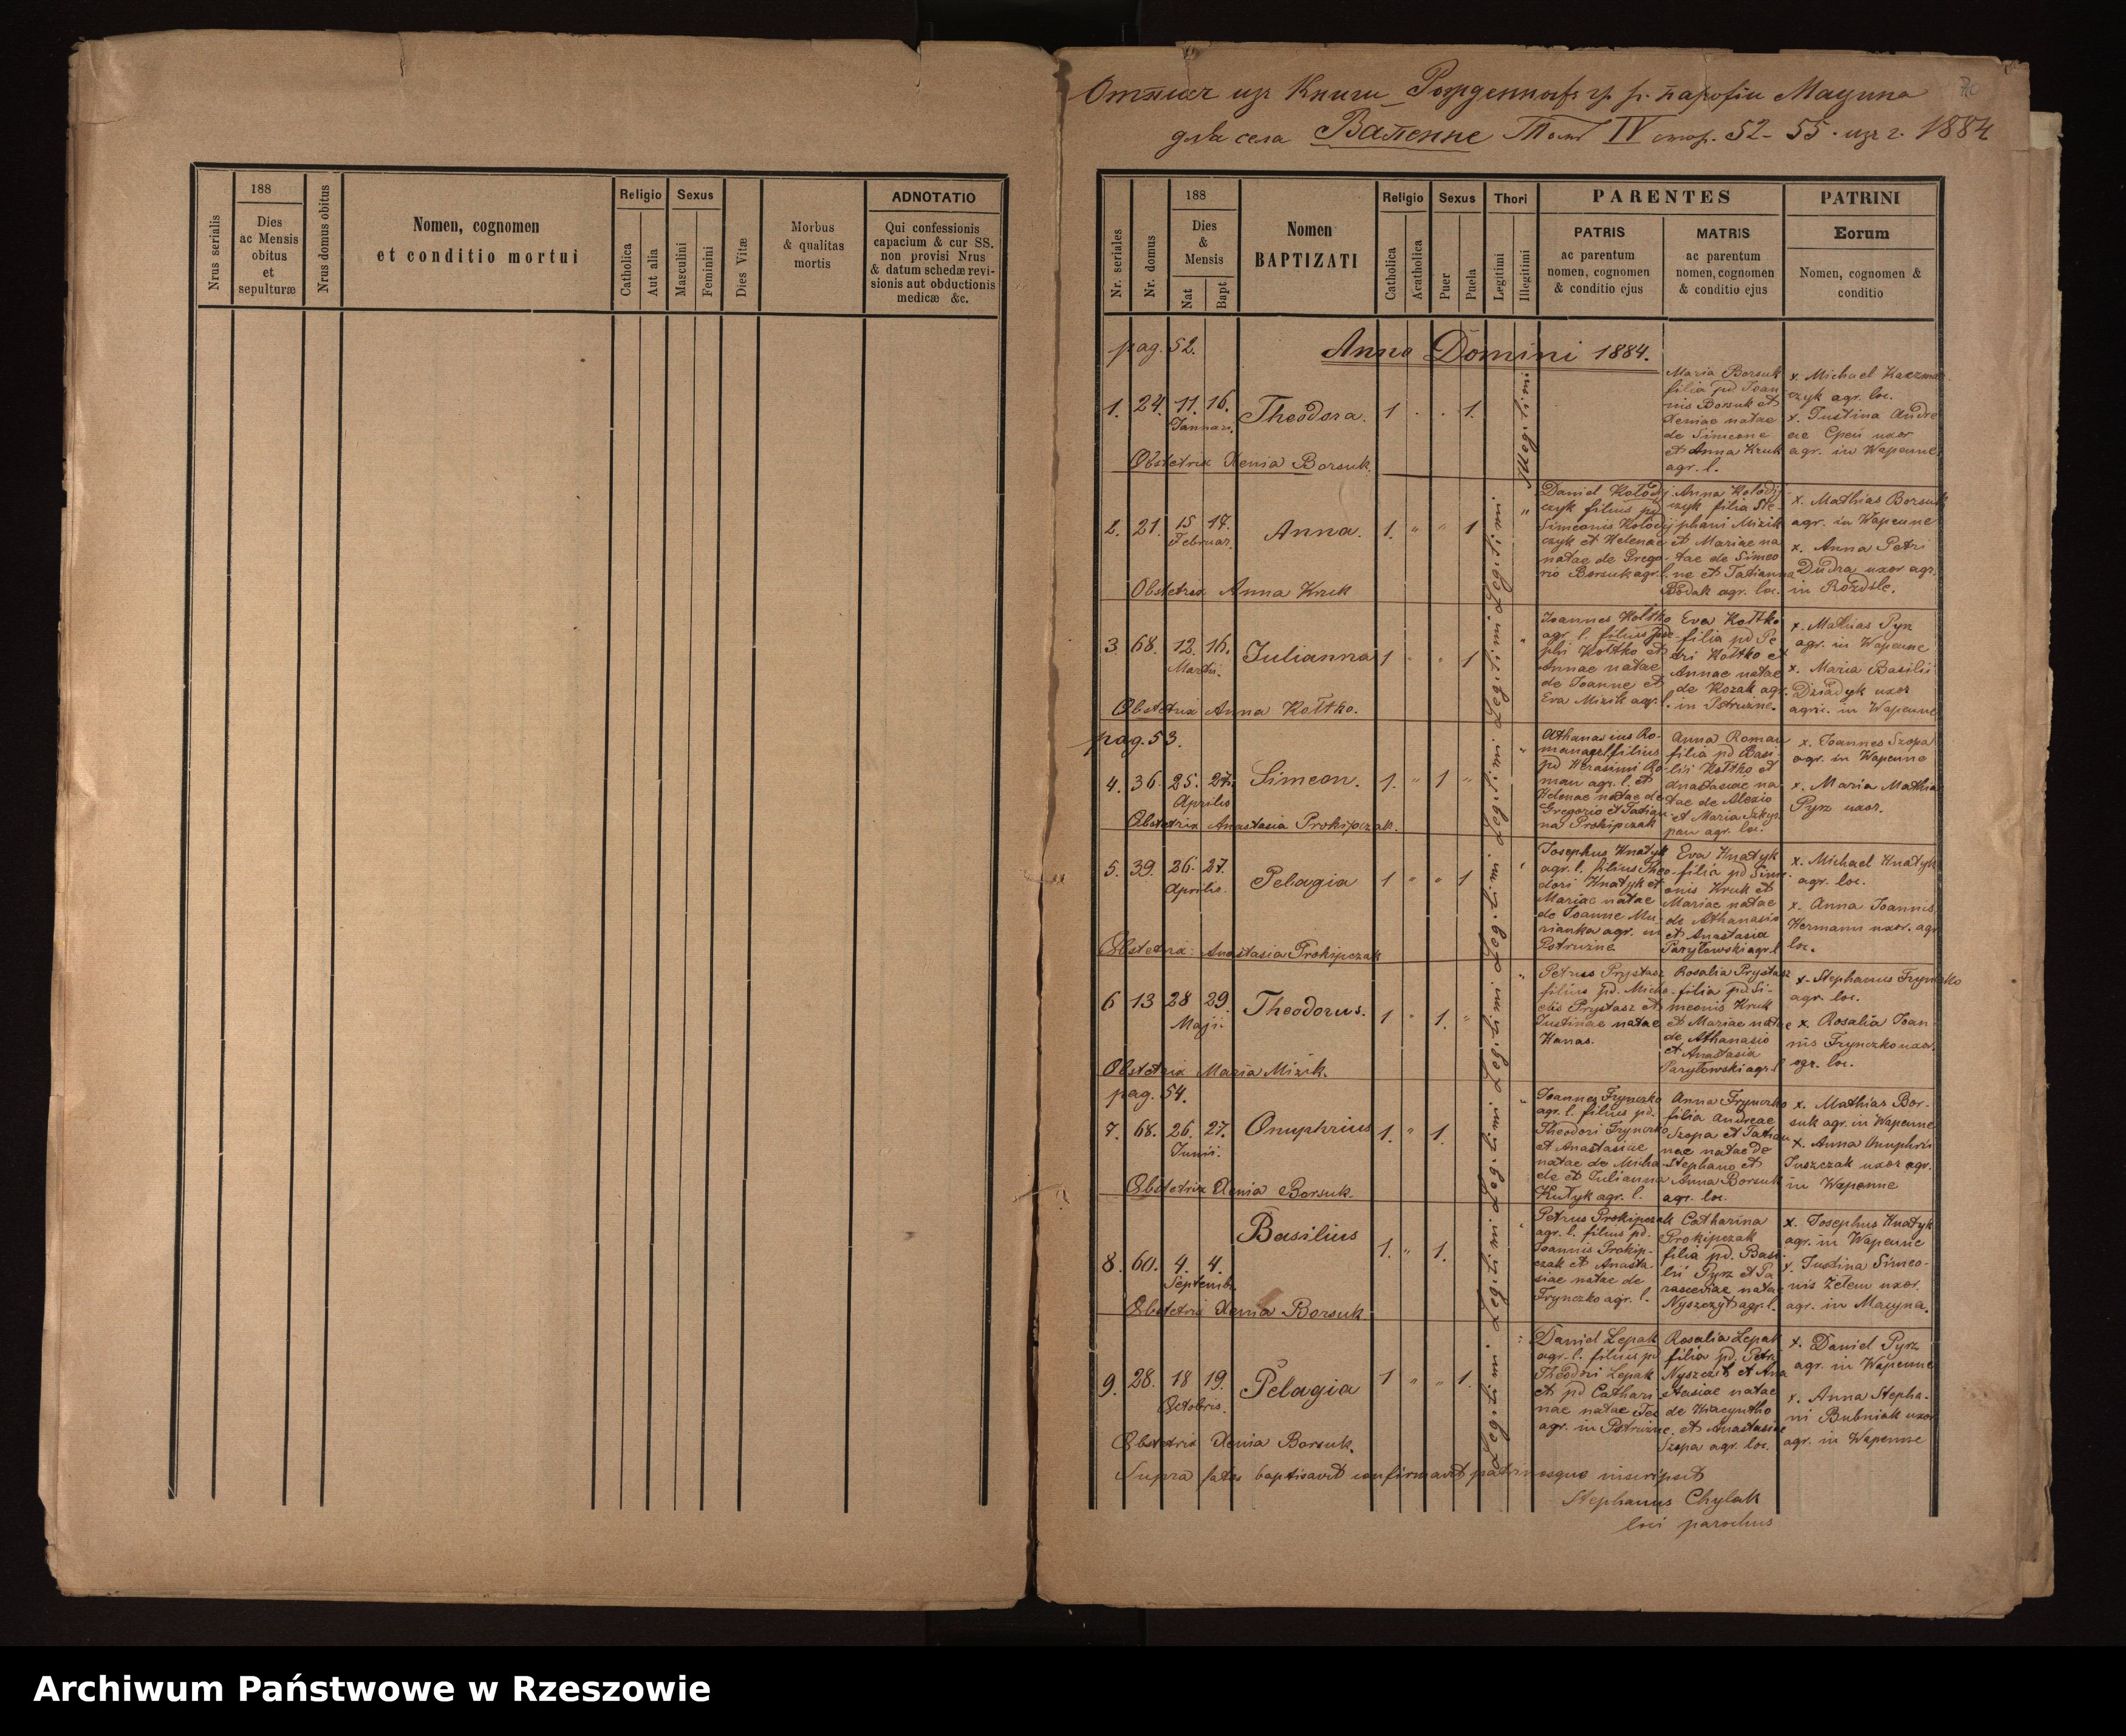 188
ADNOTATIO
Nrus serialis
Dies
ac Mensis
obitus
et
sepulturæ
Nrus domus obitus
Nomen, cognomen
et conditio mortui
Religio
Catholica
Aut alia
Sexus
Masculini
Feminini
Dies Vitæ
Morbus
& qualitas
mortis
Qui confessionis
capacium & cur SS.
non provisi Nrus
& datum schedæ revi-
sionis aut obductionis
medicæ &c.
из Книги парофіи Мацина
для села Вапенне Том IV стор. 52-55. из г. 1884
Nr. seriales
Nr. domus
188
Dies
&
Mensis
Nat
Bapt
Nomen
BAPTIZATI
Religio
Catholica
Acatholica
Sexus
Puer
Puela
Thori
Legitimi
Illegitimi
PARENTES
PATRIS
ac parentum
nomen, cognomen
& conditio ejus
MATRIS
ac parentum
nomen, cognomen
& conditio ejus
PATRINI
Eorum
Nomen, cognomen &
conditio
pag. 52.
Anno Domini 1884.
1. 24. 11. 16. Theodora. 1 . . 1.
Januari.
Illegitimi
Maria Borsuk
filia pd Joan
nis Borsuk et
Xeniae natae
de Simeone
et Anna Kruk
agr. l.
x. Michael Kaczmar
czyk agr. loc.
x. Justina Andre
ae uxor
agr. in Wapenne
Obstetrix Xenia Borsuk.
2. 21. 15 17. Anna. 1. " " 1
Februar.
Daniel Kołodij
czyk filius pd
Simeonis Kołodij
czyk et Helenae
natae de Grego-
rio Borsuk agr. l.
Anna Kołodij
czyk filia Ste-
phani Mizik
et Mariae na
tae de Simeo
ne et Tatianna
Bodak agr. loc.
x. Mathias Borsuk
agr. in Wapenne
x. Anna Petri
Dudra uxor agr.
in Rozdile.
Obstetrix Anna Kruk
3 68. 12. 16. Julianna 1 " " 1
Martii.
Joannes Kołtko
agr. l. filius Jose
phi Kołtko et
Annae natae
de Joanne et
Eva Mizik agr. l.
Eva Kołtko
filia pd Pe
tri Kołtko et
Annae natae
de Kozak agr.
in Pstruzne.
x. Mathias Pyrz
agr. in Wapenne
x. Maria Basilii
Dziadyk uxor
agric. in Wapenne
Obstetrix Anna Kołtko.
pag. 53.
4. 36. 25. 27. Simeon. 1. " 1 "
Aprilis
Athanasius Ro-
man agr. l. filius
pd Herasimi Ro-
man agr. l. et
Helenae natae de
Gregorio et Tatian
na Prokipczak
Anna Roman
filia pd Basi
lii Kołtko et
Anastasiae na-
tae de Alexio
et Maria
agr. loc.
x. Joannes Szopa
agr. in Wapenne
x. Maria Mathiae
Pyrz uxor.
Obstetrix Anastasia Prokipczak.
5. 39. 26. 27. Pelagia 1 " " 1
Aprilis.
Josephus Hnatyk
agr. l. filius Theo-
dori Hnatyk et
Mariae natae
de Joanne Mu-
rianka agr. in
Pstruzne
Eva Hnatyk
filia pd Sime-
onis Kruk et
Mariae natae
de Athanasio
et Anastasia
Paryłowski agr. l
x. Michael Hnatyk
agr. loc.
x. Anna Joannis
Hermann uxor. agr
loc.
Obstetrix: Anastasia Prokipczak
6 13 28 29. Theodorus. 1 " 1. "
Maji.
Petrus Prystasz
filius pd. Micha-
elis Prystasz et
Justinae natae
Hanas.
Rosalia Prystasz
filia pd Si-
meonis Kruk
et Mariae natae
de Athanasio
et Anastasia
Paryłowski agr. l
x. Stephanus Fryncko
agr. loc.
x. Rosalia Joan
nis Frynczko uxor.
agr. loc.
Obstetrix Maria Mizik.
pag. 54.
7. 68. 26. 27. Onuphrius 1. " 1.
Junii.
Joannes Frynczko
agr. l. filius pd.
Theodori Frynczko
et Anastasiae
natae de Micha-
ele et Julianna
Hutyk agr. l.
Anna Frynczko
filia Andreae
Szopa et Tatian
nae natae de
Stephano et
Anna Borsuk
agr. loc.
x. Mathias Bor-
suk agr. in Wapenne
x. Anna Onuphrii
Juszczak uxor agr.
in Wapenne
Obstetrix Xenia Borsuk.
8. 60. 4. 4. Basilius 1. " 1.
Septembr.
Petrus Prokipczak
agr. l. filius pd.
Joannis Prokip-
czak et Anasta-
siae natae de
Frynczko agr. l.
Catharina
Prokipczak
filia pd. Basi
lii Pyrz et Pa
rasceviae natae
Nyszczyt agr. l.
x. Josephus Hnatyk
agr. in Wapenne
x. Justina Simeo-
nis Zelem uxor.
agr. in Macyna.
Obstetrix Xenia Borsuk.
9. 28. 18 19. Pelagia 1 " " 1.
Octobris.
Daniel Lepak
agr. l. filius pd
Theodori Lepak
et pd Cathari-
nae natae Fec
agr. in Pstruzne.
Rosalia Lepak
filia pd. Petri
Nyszczit et Ana
stasiae natae
de Hiacyntho
et Anastasiae
Szopa agr. loc.
x. Daniel Pyrz
agr. in Wapenne
x. Anna Stepha-
ni Bubniak uxor
agr. in Wapenne
Obstetrix Xenia Borsuk.
Legitimi Legitimi Legitimi Legitimi Legitimi Legitimi Legitimi Legitimi
Supra fatos baptisavit confirmavit patrinosque inscripsit
Stephanus Chylak
loci parochus
Archiwum Państwowe w Rzeszowie